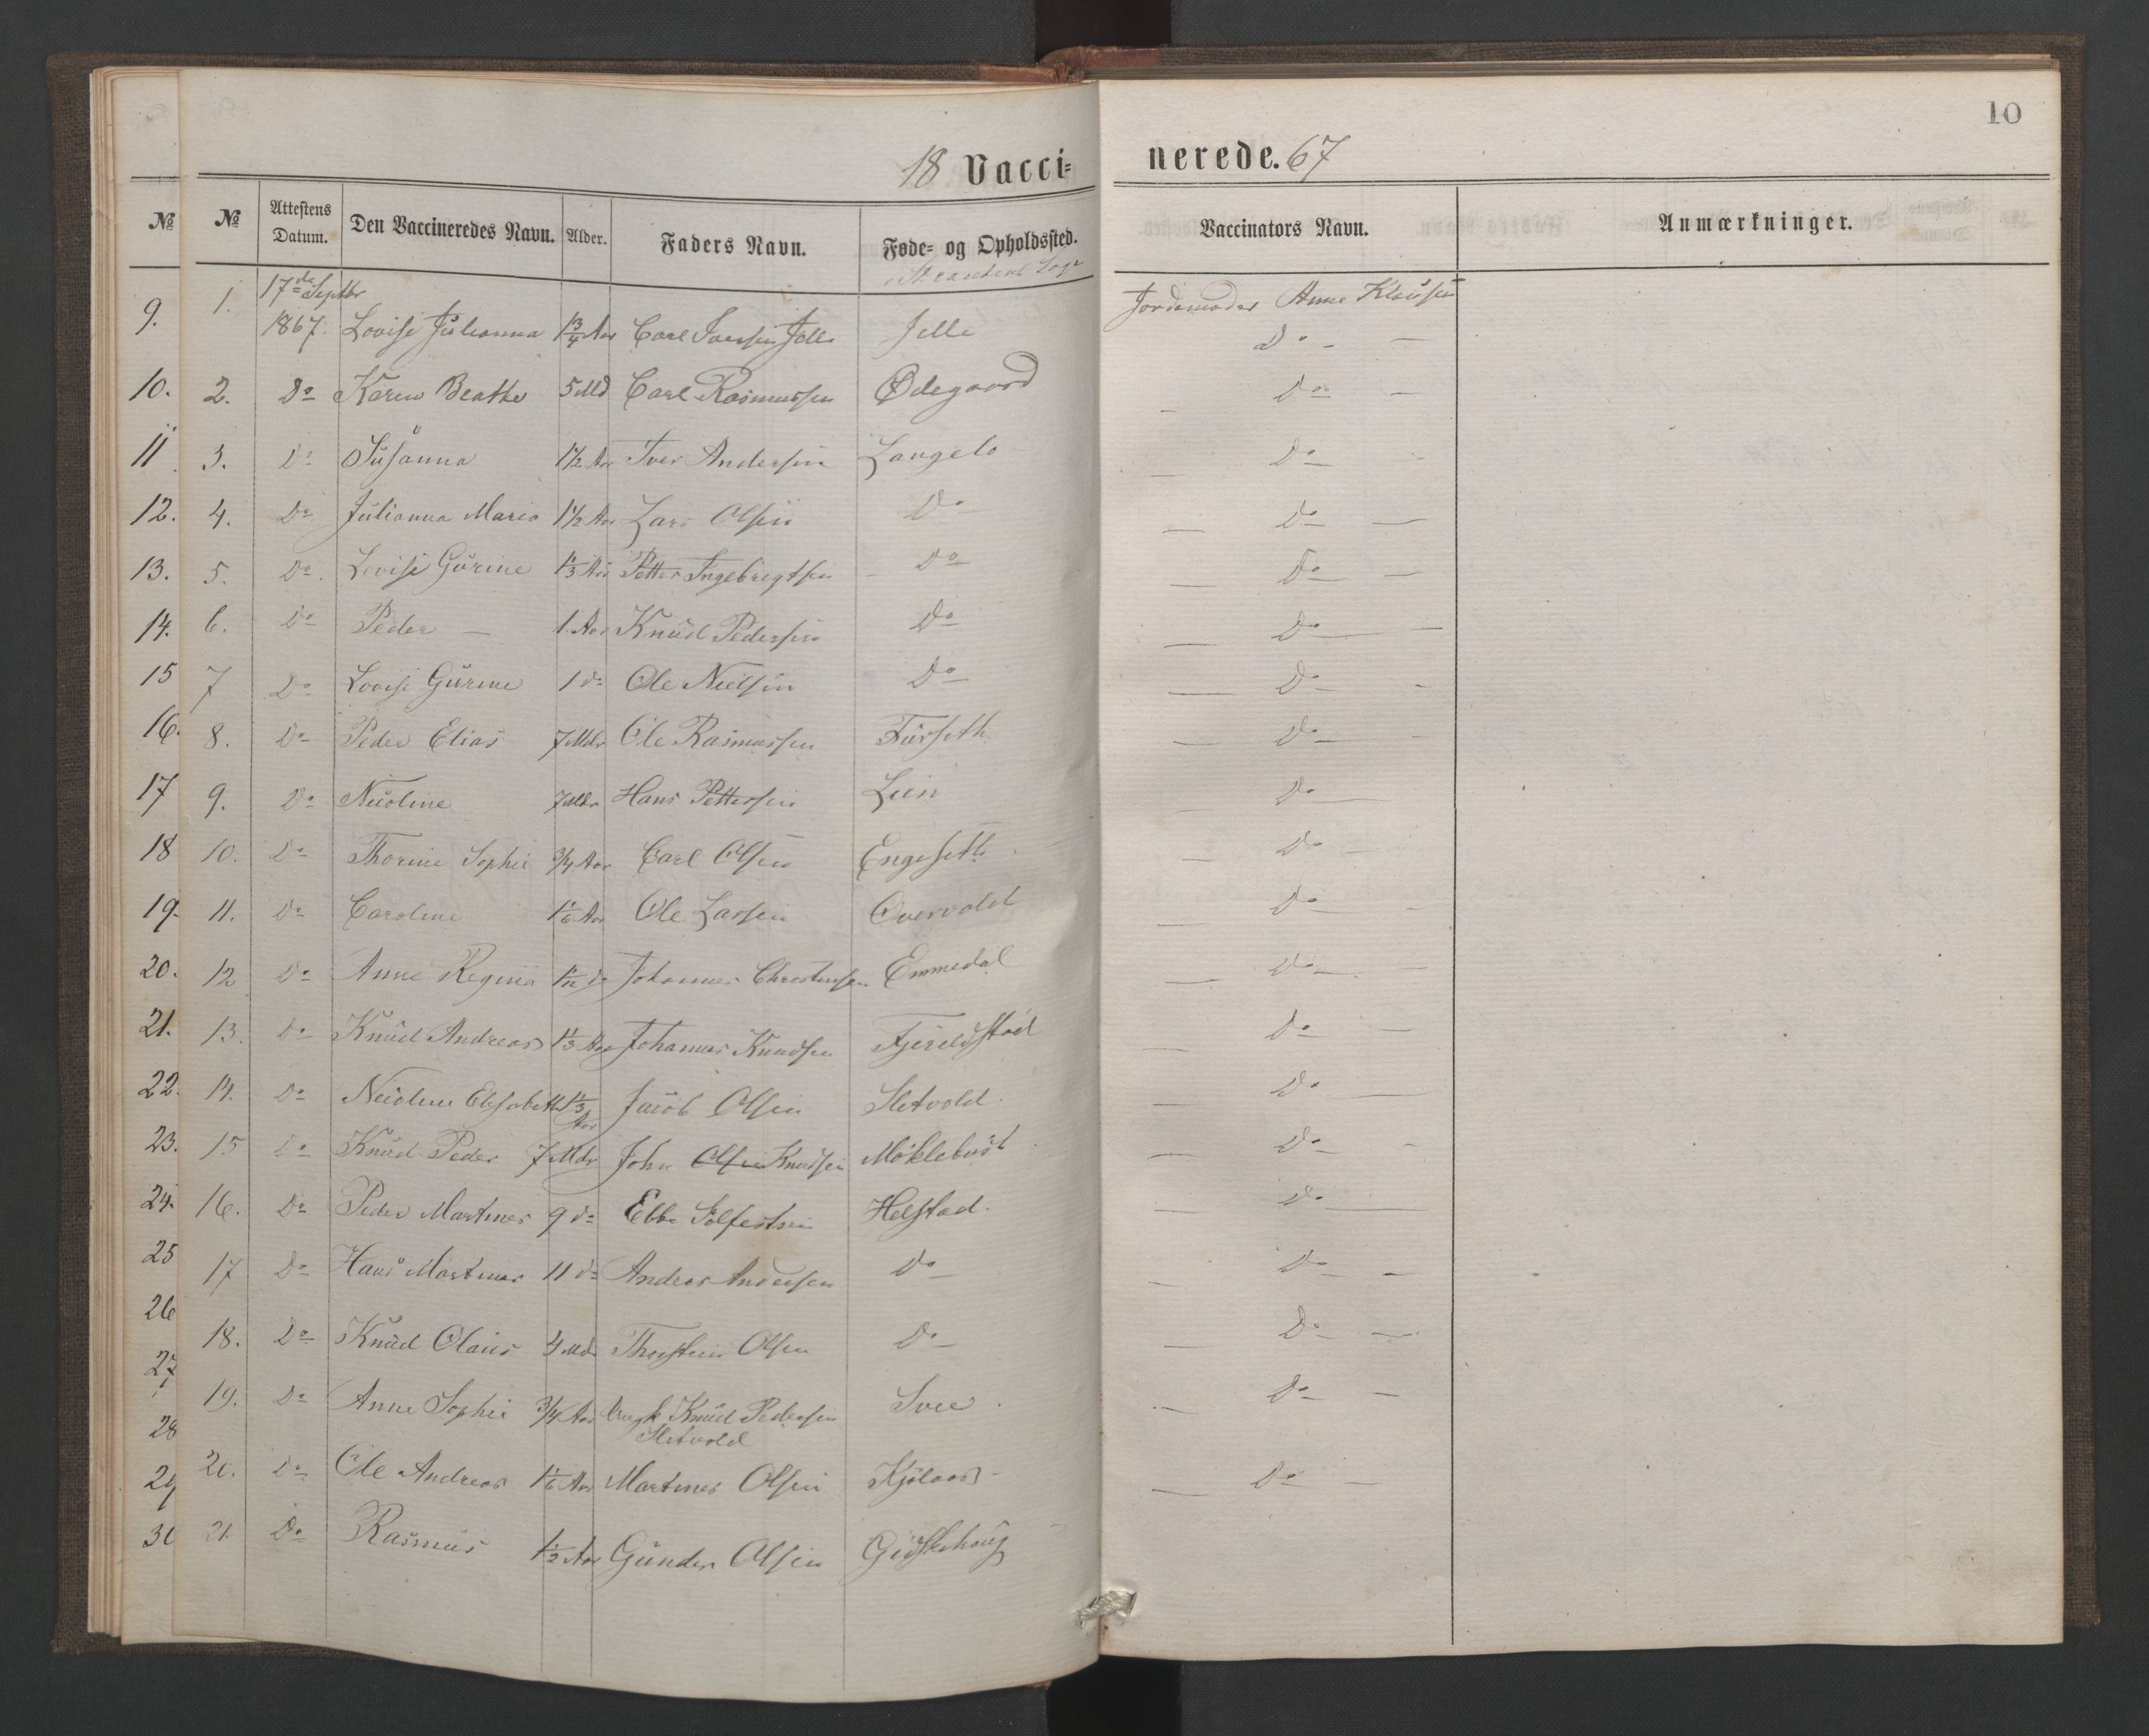 10
18 Vacci-
nerede. 67
№ № Attestens Datum. Den Vaccineredes Navn. Alder. Faders Navn. Føde- og Opholdssted. Vaccinators Navn. Anmærkninger.
Strandens Sogn
9. 1. 17de Septbr 1867. Lovise Julianna 1 3/4 Aar Carl Iversen Jelle Jelle Jordemoder Anne Klausen
Do
10. 2. Do Karen Beathe 5 Md Carl Rasmussen Ødegaard Do
11. 3. Do Susanna 1 1/2 Aar Iver Andersen Langelo Do
12. 4. Do Julianna Maria 1 1/2 Aar Lars Olsen Do Do
13. 5. Do Lovise Gurine 1 1/3 Aar Petter Ingebrigtsen Do Do
14. 6. Do Peder 1. Aar Knud Pedersen Do Do
15 7 Do Lovise Gurine 1 do Ole Nielsen Do Do
16. 8. Do Peder Elias 7 Mdr Ole Rasmussen Furseth Do
17 9. Do Nicoline 7 Mdr Hans Pettersen Lien Do
18 10. Do Thorine Sophie 3/4 Aar Carl Olsen Engeseth Do
19. 11. Do Caroline 1 1/6 Aar Ole Larsen Overvold Do
20. 12 Do Anne Regina 1 1/12 do Johannes Christensen Emmedal Do
21. 13. Do Knud Andreas 1 1/3 Aar Johannes Knudsen Fjeldstad Do
22. 14. Do Nicoline Elisabeth 1 1/3 Aar Jacob Olsen Sletvold. Do
23. 15 Do Knud Peder 7 Mdr John Olsen Knudsen Møklebust Do
24. 16. Do Peder Martines 9 do Ebbe Solfestsen Helstad. Do
25 17 Do Hans Martines 11 do Andreas Andersen Do Do
26 18. Do Knud Olaus 4 Mdr Thorstein Olsen Do Do
27 19. Do Anne Sophie 3/4 Aar Knud Pedersen Sletvold Svee Do
28
29 20. Do Ole Andreas 1 1/6 Aar Martines Olsen Kjølaas Do
30 21. Do Rasmus 1 1/2 Aar Gunder Olsen Gidskehaug